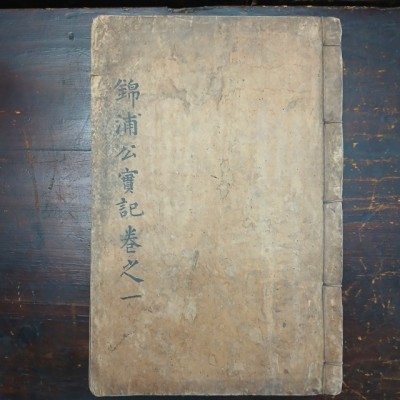 錦浦公實記卷之一